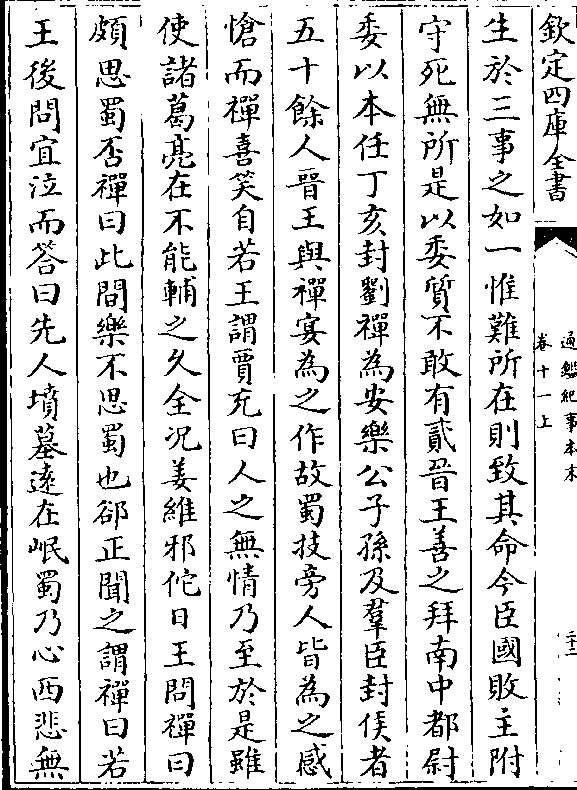 欽定四庫全書
通鑑紀事本末
卷十一上
生於三事之如一惟難所在則致其命今臣國敗主附
守死無所是以委質不敢有貳晉王善之拜南中都尉
委以本任丁亥封劉禪為安樂公子孫及羣臣封侯者
五十餘人晉王與禪宴為之作故蜀技旁人皆為之感
愴而禪喜笑自若王謂賈充曰人之無情乃至於是雖
使諸葛亮在不能輔之久全况姜維邪佗日王問禪曰
頗思蜀否禪曰此間樂不思蜀也郤正聞之謂禪曰若
王後問宜泣而答曰先人墳墓遠在岷蜀乃心西悲無